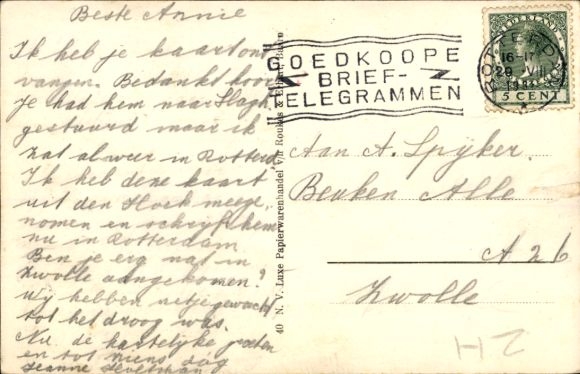 Beste Annie
Ik heb je kaart ont
vangen. Bedankt hoor
Je had hem naar Slagh.
gestuurd maar ik
zat al weer in Rotterd.
Ik heb deze kaart
uit den Hoek meege,
nomen en schrijf hem
nu in Rotterdam
Ben je erg nat in
Zwolle aangekomen?
Wij hebben netjes gewacht
tot het droog was.
Nu de hartelijke groeten
en tot ziens dag
Jeanne
40 N. V. Luxe Papierwarenhandel v/h Roukes & Erhart, Baarn
GOEDKOOPE
BRIEF-
TELEGRAMMEN
NEDERLAND
5 CENT
ROTTERDAM
16-17
29 VII
Aan A. Spijker.
Beuken Alle
A 26
Zwolle
ZH